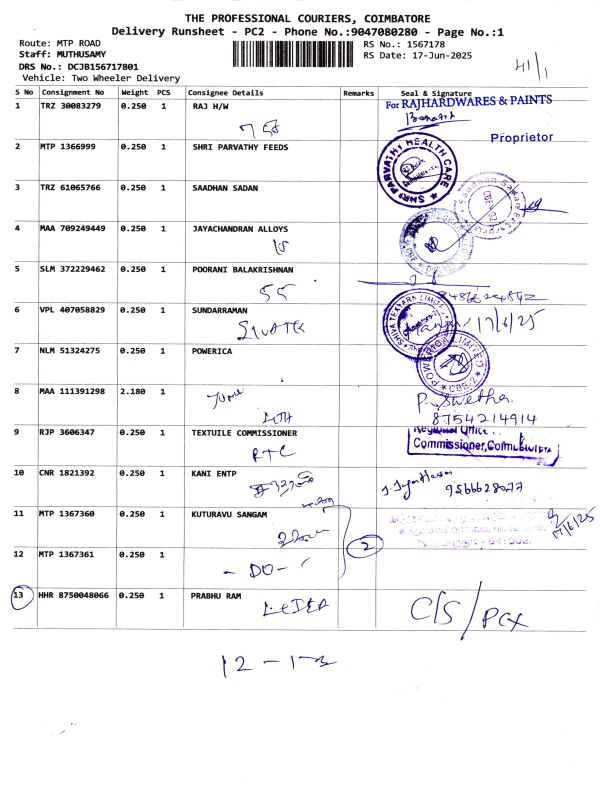 THE PROFESSIONAL COURIERS, COIMBATORE
Delivery Runsheet - PC2 - Phone No.:9047080280 - Page No.:1
Route: MTP ROAD
Staff: MUTHUSAMY
DRS No.: DCJB156717801
Vehicle: Two Wheeler Delivery
RS No.: 1567178
RS Date: 17-Jun-2025
41/1
S No Consignment No Weight PCS Consignee Details Remarks Seal & Signature
1 TRZ 30083279 0.250 1 RAJ H/W
For RAJHARDWARES & PAINTS
Proprietor
2 MTP 1366999 0.250 1 SHRI PARVATHY FEEDS
SHRI PARVATHI HEALTH CARE
3 TRZ 61065766 0.250 1 SAADHAN SADAN
4 MAA 709249449 0.250 1 JAYACHANDRAN ALLOYS
5 SLM 372229462 0.250 1 POORANI BALAKRISHNAN
55
6 VPL 407058829 0.250 1 SUNDARRAMAN
SHIVA TEXYARN LIMITED
17/6/25
7 NLM 51324275 0.250 1 POWERICA
POWERICA LIMITED
CBE-2
8 MAA 111391298 2.180 1
P. Swetha
8754214914
9 RJP 3606347 0.250 1 TEXTUILE COMMISSIONER
RTC
Regional Office
Commissioner, Coimbatore
10 CNR 1821392 0.250 1 KANI ENTP
9566628077
11 MTP 1367360 0.250 1 KUTURAVU SANGAM
17/6/25
2
12 MTP 1367361 0.250 1
- DO -
13 HHR 8750048066 0.250 1 PRABHU RAM
C/S/PCX
12 - 1 - 3